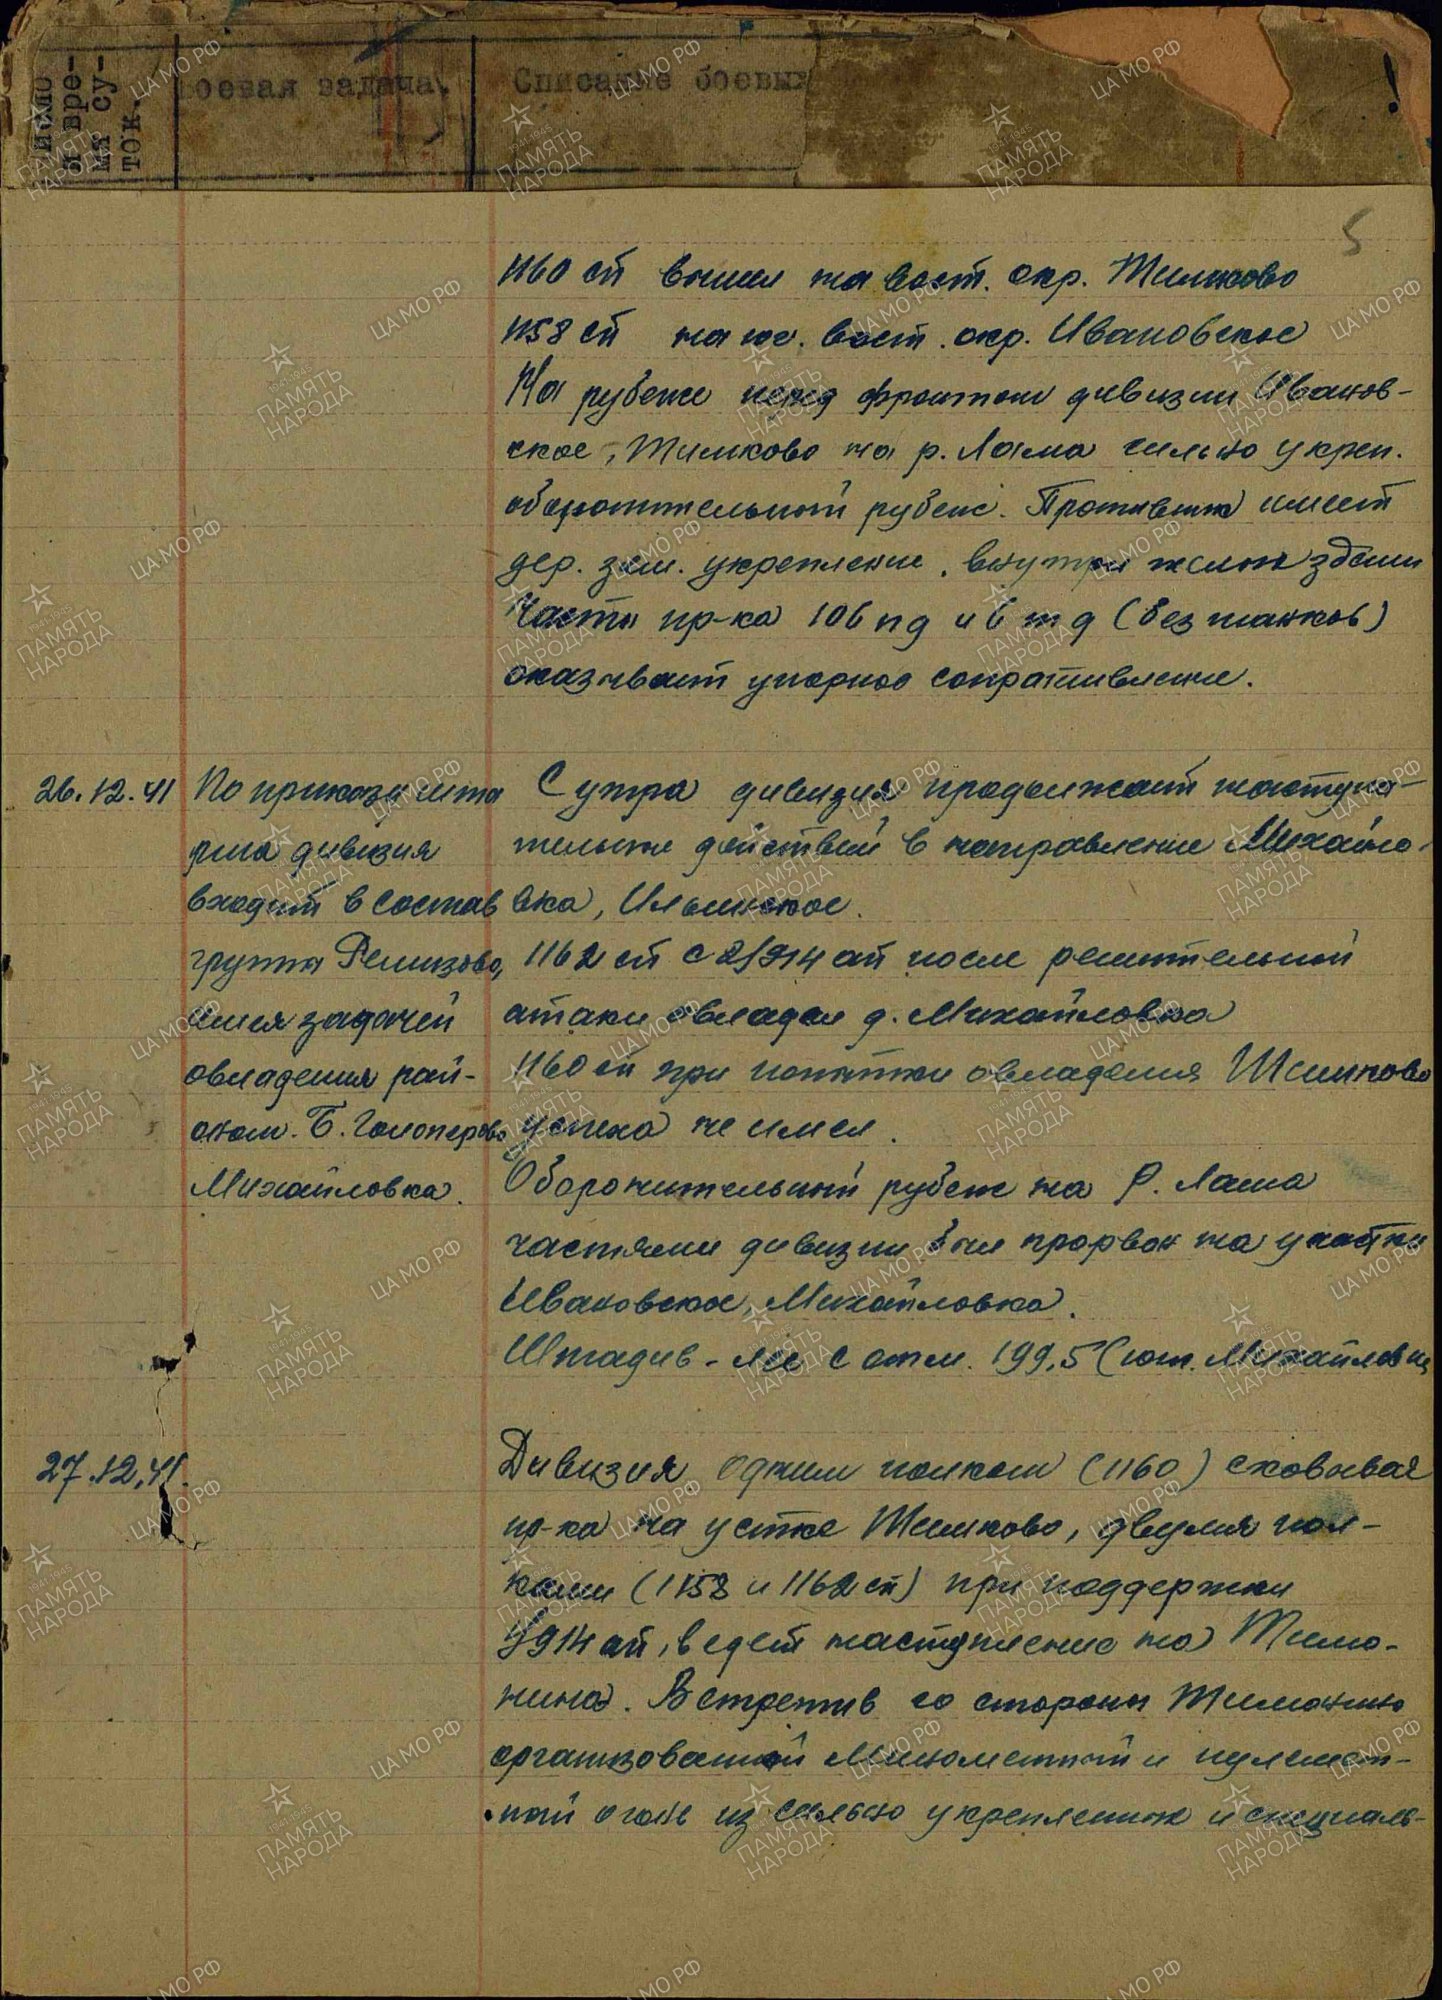 число
и вре-
мя су-
ток.
боевая задача.
Описание боевых
5
1160 сп вышел на вост. окр. Тимково
1158 сп на юг. вост. окр. Ивановское
На рубеже перед фронтом дивизии Иванов-
ское, Тимково на р. Лама сильно укреп.
оборонительный рубеж. Противник имеет
дер. зем. укрепление, внутри жилых зданий
Части пр-ка 106 пд и 6 тд (без танков)
оказывает упорное сопротивление.
26.12.41
По приказу шта
рма дивизия
входит в состав
группы Ремизова,
имея задачей
овладения рай-
оном. Б. Голоперово
Михайловка.
С утра дивизия продолжает наступа-
тельные действий в направление Михайло-
вка, Ильинское.
1162 сп с 2/914 ап после решительной
атаки овладел д. Михайловка
1160 сп при попытки овладения Тимково
успеха не имел.
Оборонительный рубеж на р. Лама
частями дивизии был прорван на участки
Ивановское, Михайловка.
Штадив - лес с отм. 199,5 (юж. Михайловка
27.12.41.
Дивизия одним полком (1160) сковывая
пр-ка на устке Тимково, двумя пол-
ками (1158 и 1162 сп) при поддержки
914 ап, ведет наступление на Тимо-
нино. Встретив со стороны Тимонино
организованный минометный и пулемет-
ный огонь из сильно укрепленых и специаль-